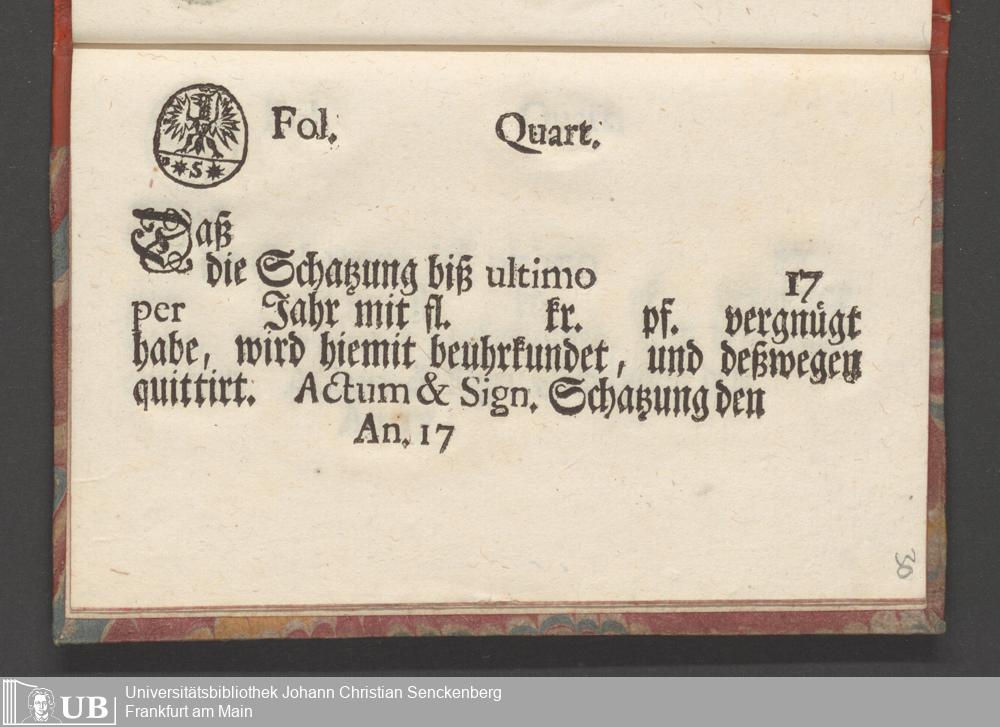 * S *
Fol. Quart.
Daß
die Schatzung biß ultimo 17
per Jahr mit fl. kr. pf. vergnügt
habe, wird hiemit beuhrkundet, und deßwegen
quittirt. Actum & Sign. Schatzung den
An. 17
30
UB
Universitätsbibliothek Johann Christian Senckenberg
Frankfurt am Main